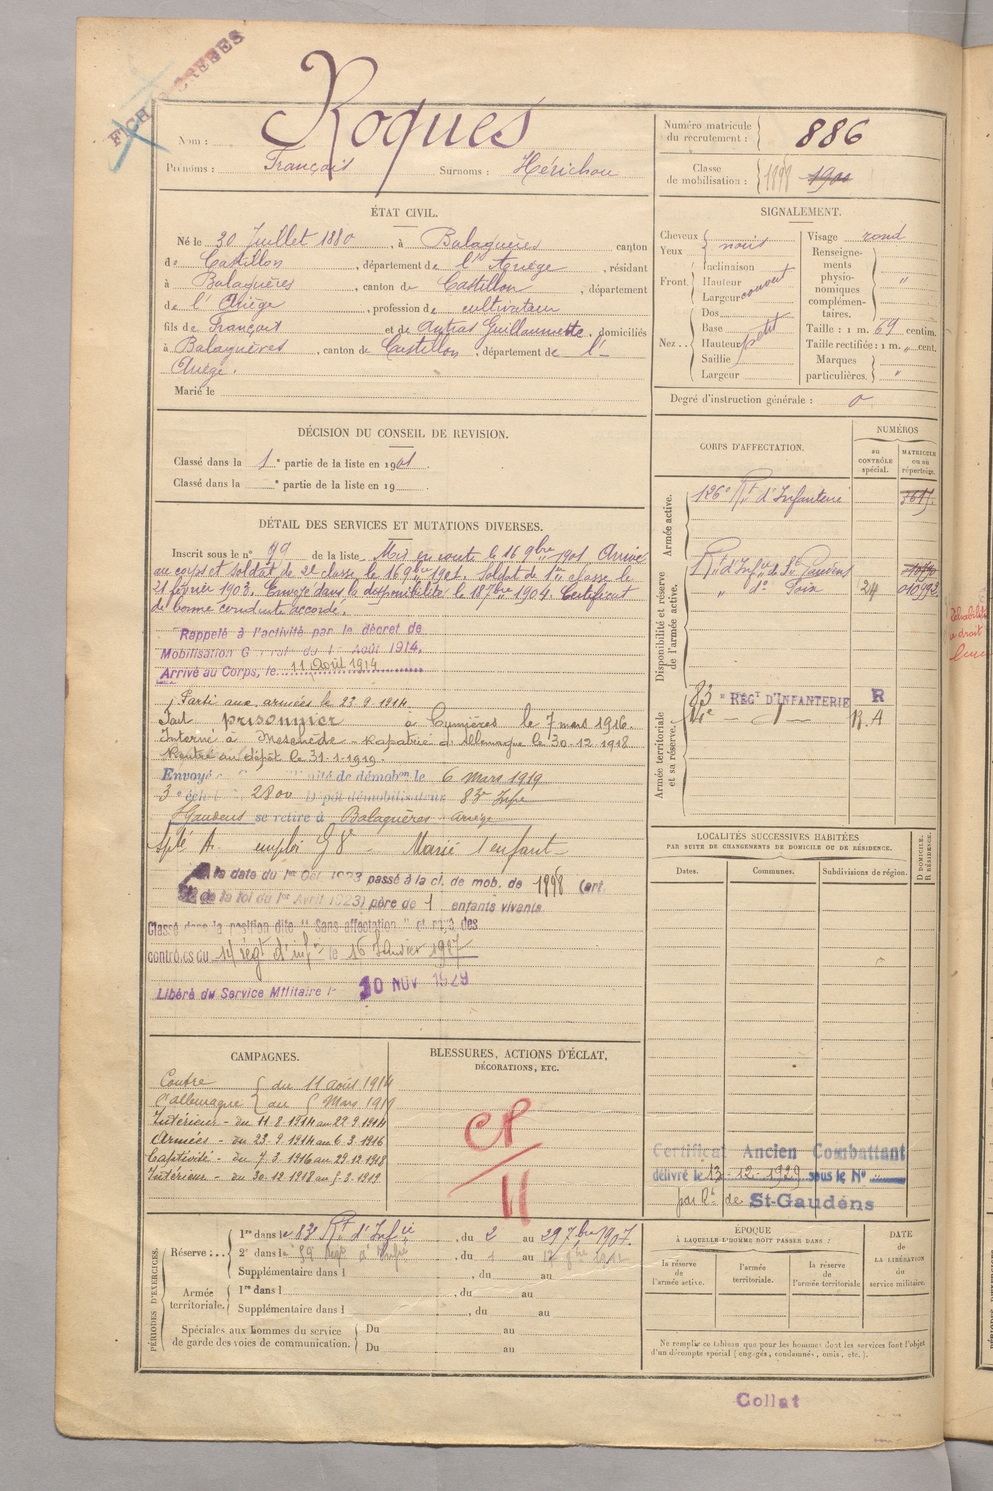 FICHES CREEES
Nom : Roques
Prénoms : François Surnoms : Hérichou
Numéro matricule du recrutement : 886
Classe de mobilisation : 1898 1900
ÉTAT CIVIL.
Né le 30 Juillet 1880, à Balaguères canton
de Castillon, département de l'Ariège, résidant
à Balaguères, canton de Castillon, département
de l'Ariège, profession de cultivateur
fils de François et de Autras Guillaumette, domiciliés
à Balaguères, canton de Castillon, département de l'-
Ariège.
Marié le
SIGNALEMENT.
Cheveux
Yeux noirs
Front Inclinaison
Hauteur
Largeur couvert
Nez Dos
Base
Hauteur petit
Saillie
Largeur
Visage rond
Renseignements physionomiques complémentaires. "
Taille : 1 m. 69 centim.
Taille rectifiée : 1 m. " cent.
Marques particulières. "
Degré d'instruction générale : 0
DÉCISION DU CONSEIL DE REVISION.
Classé dans la 1e partie de la liste en 1901.
Classé dans la e partie de la liste en 19
DÉTAIL DES SERVICES ET MUTATIONS DIVERSES.
Inscrit sous le n° 99 de la liste. Mis en route le 16 9bre 1901. Arrivé
au corps et soldat de 2e classe le 16 9bre 1901. Soldat de 1re classe le
21 février 1903. Envoyé dans la disponibilité le 18 7bre 1904. Certificat
de bonne conduite accordé.
Rappelé à l'activité par le décret de
Mobilisation Générale du 1er Août 1914.
Arrivé au Corps, le 11 Août 1914
Parti aux armées le 23 9 1914
Fait prisonnier à Cumières le 7 mars 1916.
Interné à Meschède - Rapatrié d'Allemagne le 30-12-1918
Rentré au dépôt le 31-1-1919.
Envoyé de démobon le 6 Mars 1919
3e échelon 2800 Dépôt démobilisateur 83e Infie
St Gaudens se retire à Balaguères - Ariège
Spté A. emploi G8 - Marié 1 enfant -
A la date du 1er Oct 1923 passé à la cl. de mob. de 1898 (art.
de la loi du 1er Avril 1923) père de 1 enfants vivants
Classé dans la position dite "Sans affectation" et rayé des
contrôles du 14e régt d'infie le 16 Janvier 1927
Libéré du Service Militaire le 10 NOV 1929
CORPS D'AFFECTATION.
NUMÉROS
au CONTRÔLE spécial.
MATRICULE ou au répertoire.
Armée active.
126e Rt d'Infanterie
Disponibilité et réserve de l'armée active.
Rt d'Infie de St Gaudens
" do Foix 24 010992
Armée territoriale et sa réserve.
83e RÉGt D'INFANTERIE R
14e - d - R.A
LOCALITÉS SUCCESSIVES HABITÉES
PAR SUITE DE CHANGEMENTS DE DOMICILE OU DE RÉSIDENCE.
Dates. Communes. Subdivisions de région. D DOMICILE. R RÉSIDENCE.
CAMPAGNES.
Contre du 11 août 1914
l'allemagne au 5 Mars 1919
Intérieur - du 11.8.1914 au 22.9.1914
Armées - du 23.9.1914 au 6.3.1916
Captivité - du 7.3.1916 au 29.12.1918
Intérieur - du 30.12.1918 au 5.3.1919
BLESSURES, ACTIONS D'ÉCLAT,
DÉCORATIONS, ETC.
CP
11
Certificat Ancien Combattant
délivré le 13-12-1929 sous le No
par Rt de St-Gaudens
PÉRIODES D'EXERCICES.
Réserve : 1re dans le 83e Rt d'Infie, du 2 au 29 7bre 1907.
2e dans le Regt d'Infie, du 1 au 17
Supplémentaire dans l , du au
Armée territoriale. 1re dans l , du au
Supplémentaire dans l , du au
Spéciales aux hommes du service
de garde des voies de communication. Du au
Du au
ÉPOQUE
À LAQUELLE L'HOMME DOIT PASSER DANS :
la réserve de l'armée active.
l'armée territoriale.
la réserve de l'armée territoriale
DATE de LA LIBÉRATION du service militaire.
Ne remplir ce tableau que pour les hommes dont les services font l'objet
d'un décompte spécial (engagés, condamnés, omis, etc.).
Collat